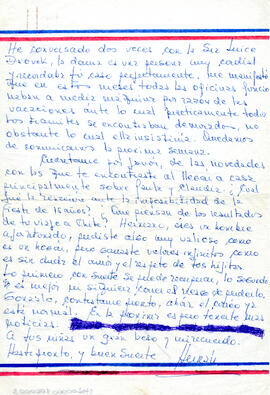 He conversado dos veces con la Sra. Luice
Drovek, la dama es una persona muy cordial
y recordaba tú caso perfectamente, me manifestó
que en estos meses todas las oficinas funcio
naban a medias máquinas por razón de las
vacaciones ante lo cual practicamente todos
los trámites se encontraban demorados, no
obstante lo cual ella insistiría. Quedamos
de comunicarnos la próxima semana.
Cuéntame por favor, de las novedades
con las que te encontraste al llegar a casa
principalmente sobre Paula y Claudia. ¿Cuál
fué la reacción ante la imposibilidad de la
fiesta de 15 años? ¿Que piensan de los resultados
de tu viaje a Chile? Hermano, eres un hombre
afortunado, pudiste algo muy valioso como
es un hogar, pero ganaste valores infinitos como
es sin duda el amor y el respeto de tus hijitas
Lo primero con suerte se puede recuperar, lo segundo
es el mejor ni siquiera correr el riesgo de perderlo.
Gonzalo, contestame pronto, abár el correo y
esté normal. En la próxima espero tenerte más
noticias.
A tus niñas un gran beso y mi recuerdo.
Hasta pronto, y buena suerte. Hernán